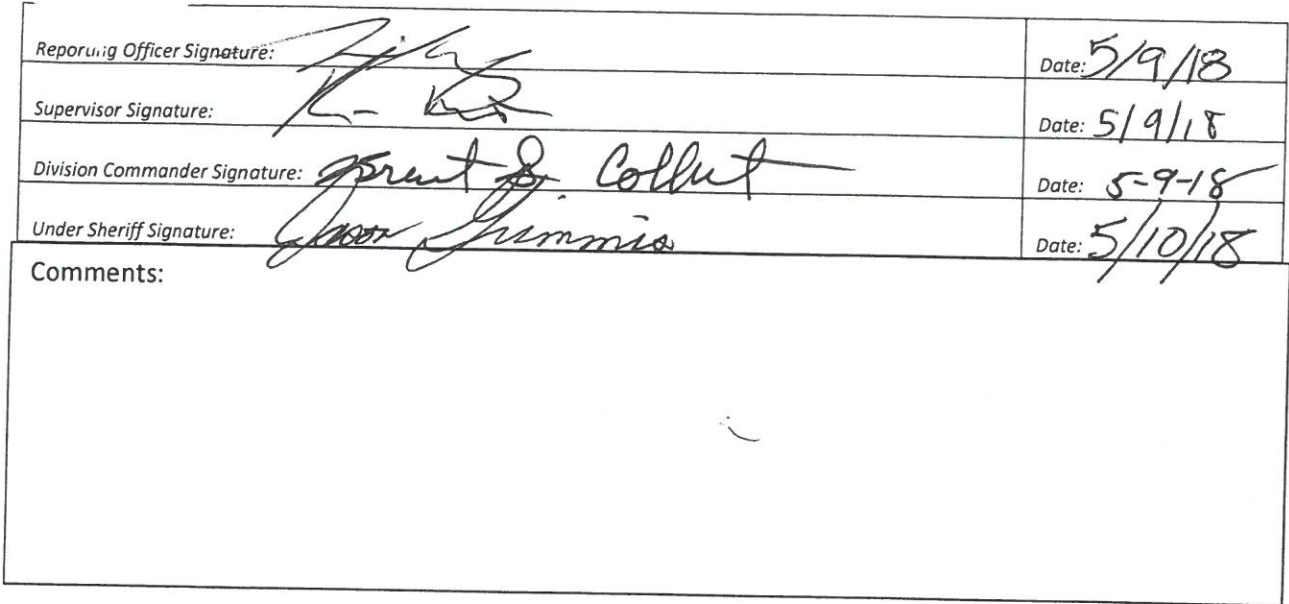 Reporting Officer Signature: Date: 5/9/18
Supervisor Signature: Date: 5/9/18
Division Commander Signature: Brent Collut Date: 5-9-18
Under Sheriff Signature: Jason Grimmis Date: 5/10/18
Comments: